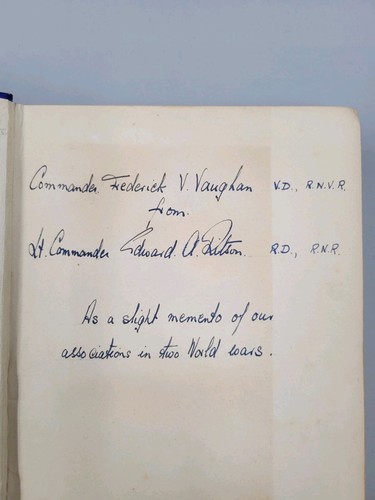 Commander Frederick V. Vaughan V.D., R.N.V.R.
from.
Lt. Commander Edward. A. Pitson. R.D., R.N.R.
As a slight memento of our
associations in two World wars.